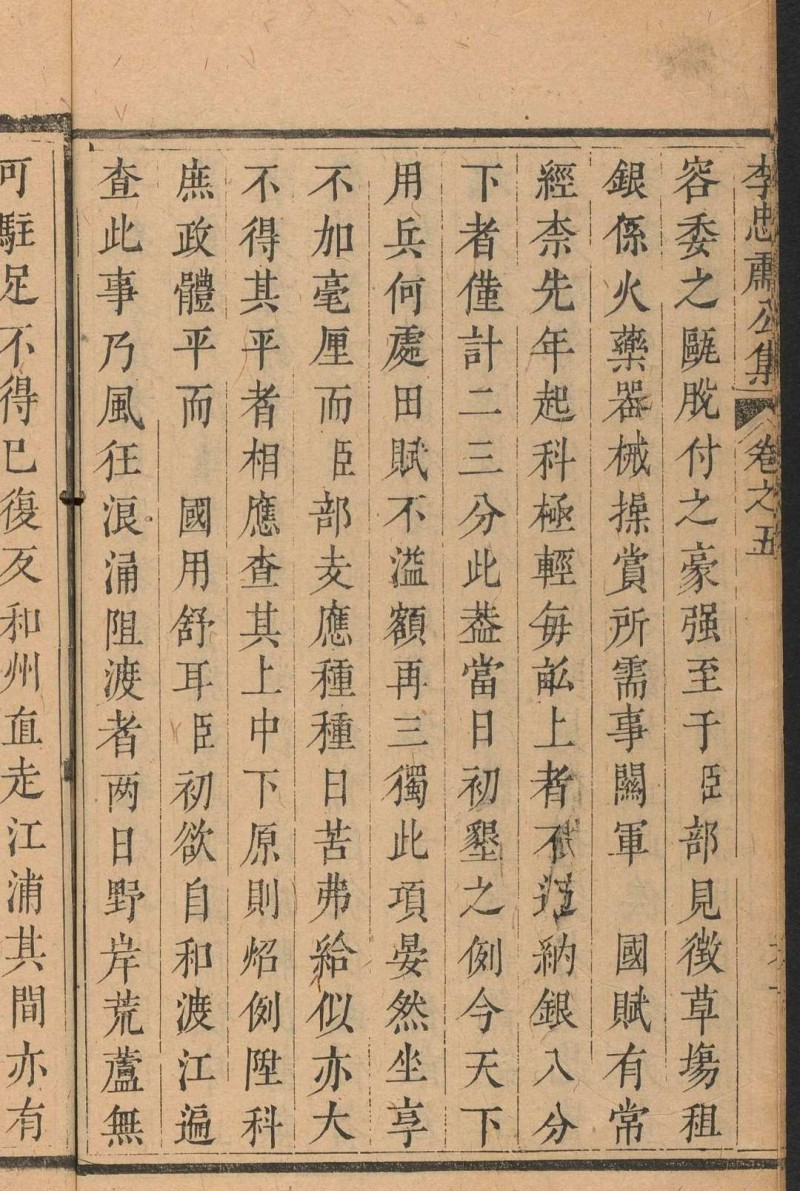 李忠肅公集 卷之五
容委之甌脫付之豪强至于臣部見徵草塲租
銀係火藥器械操賞所需事關軍 國賦有常
經柰先年起科極輕每畝上者不過納銀八分
下者僅計二三分此葢當日初墾之例今天下
用兵何處田賦不溢額再三獨此項晏然坐享
不加毫厘而臣部支應種種日苦弗給似亦大
不得其平者相應查其上中下原則炤例陞科
庶政體平而 國用舒耳臣初欲自和渡江遍
查此事乃風狂浪涌阻渡者两日野岸荒蘆無
可駐足不得已復反和州直走江浦其間亦有